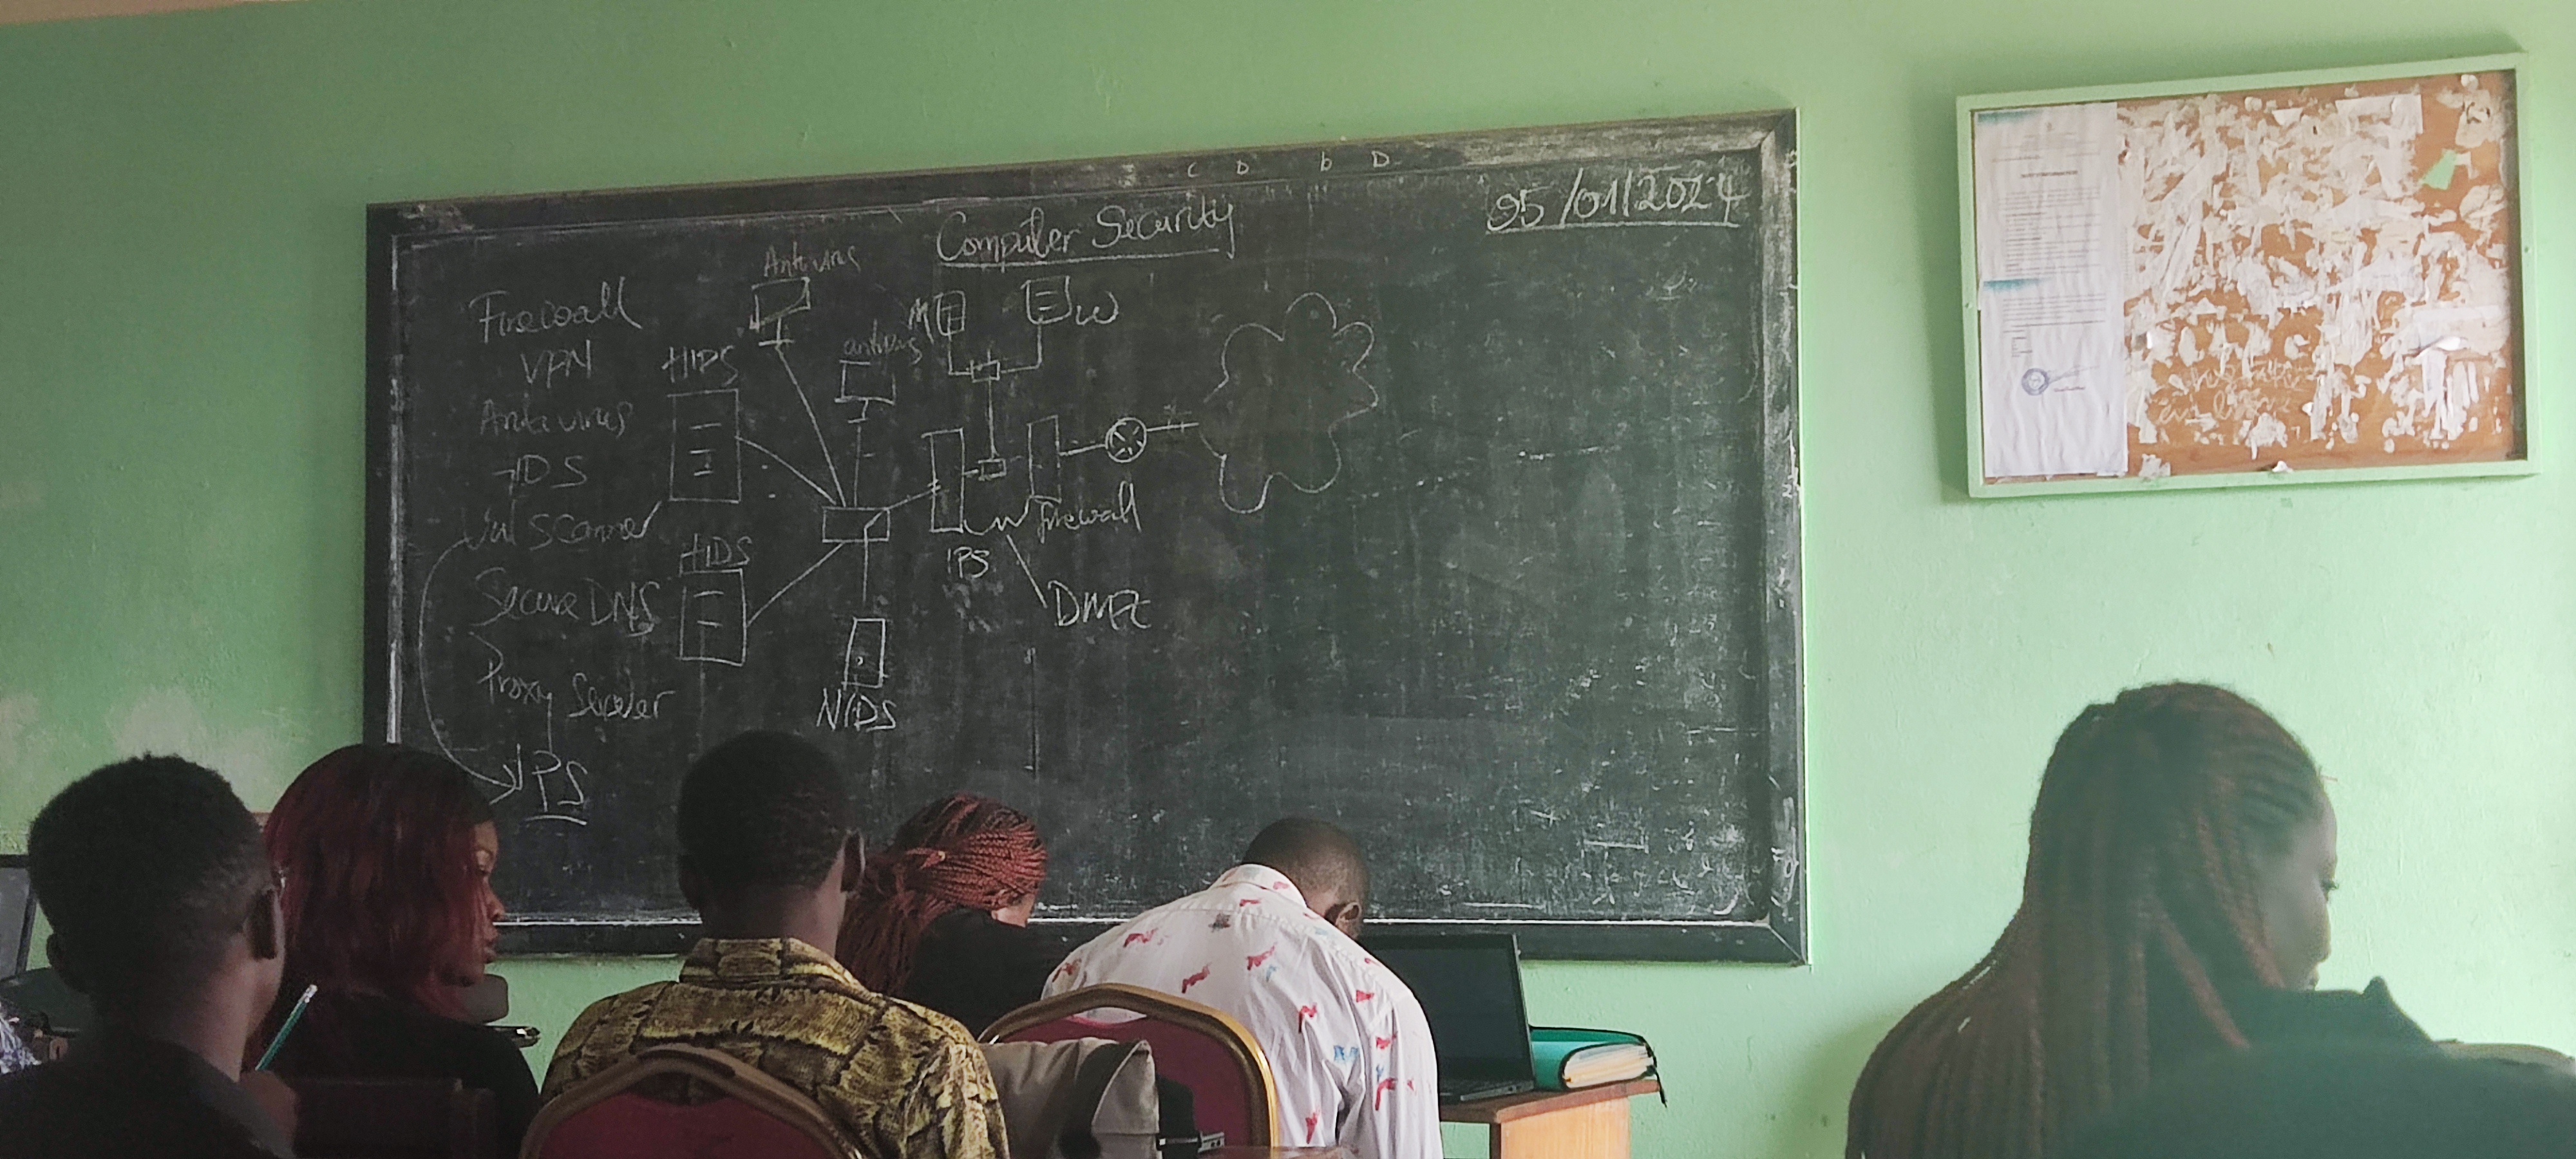 C D b D
Computer Security
05/01/2024
Firewall
VPN
Antivirus
IDS
Vul Scanner
Secure DNS
Proxy Server
IPS
Antivirus
antivirus
M
W
HIDS
HIDS
NIDS
IPS
firewall
DMZ